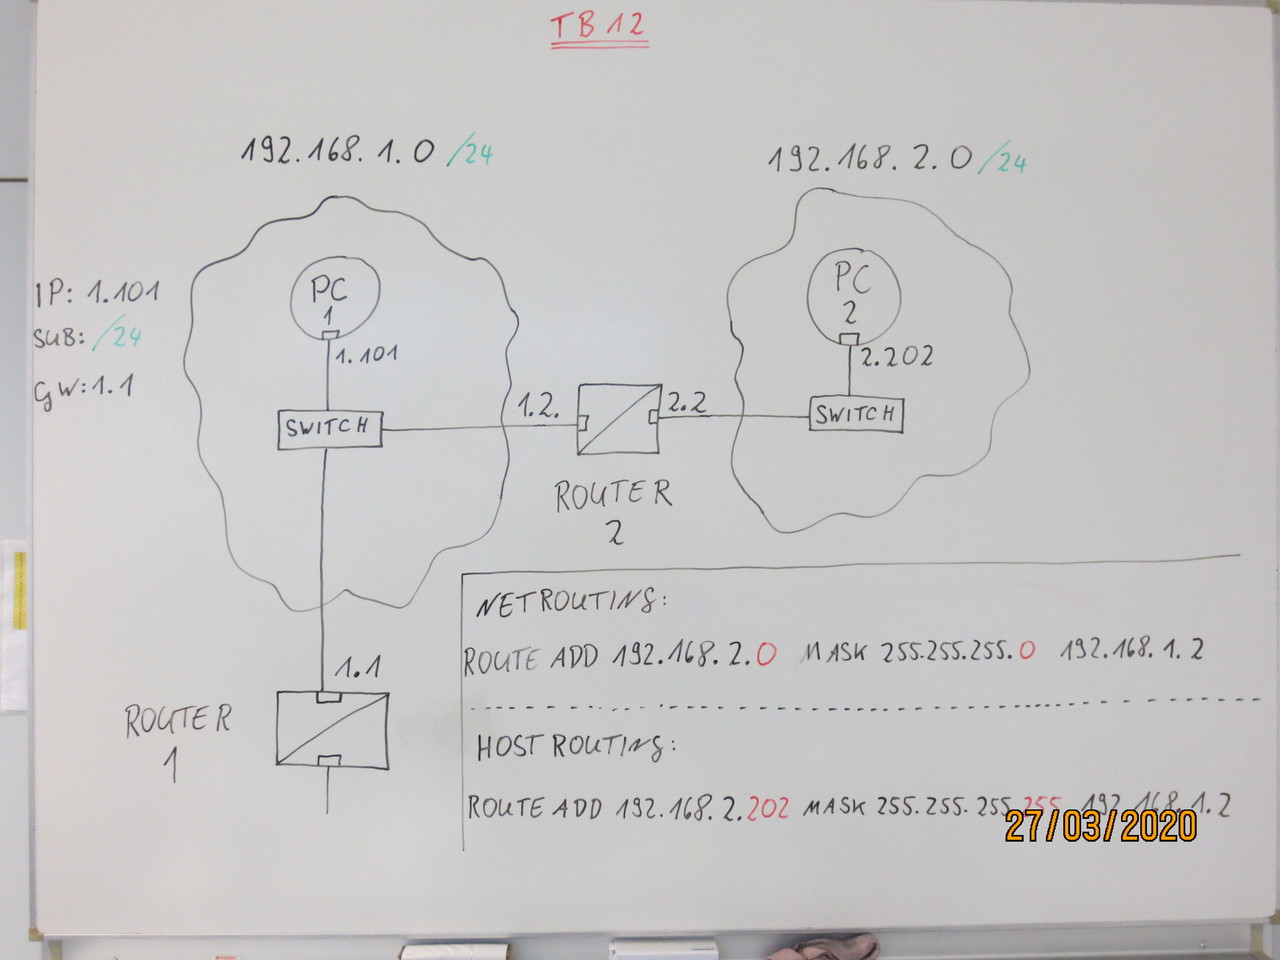 TB12
192.168.1.0 /24
192.168.2.0 /24
IP: 1.101
SUB: /24
GW: 1.1
PC
1
1.101
SWITCH
1.2.
2.2
ROUTER
2
PC
2
2.202
SWITCH
1.1
ROUTER
1
NETROUTING:
ROUTE ADD 192.168.2.0 MASK 255.255.255.0 192.168.1.2
HOST ROUTING:
ROUTE ADD 192.168.2.202 MASK 255.255.255.255 192.168.1.2
27/03/2020